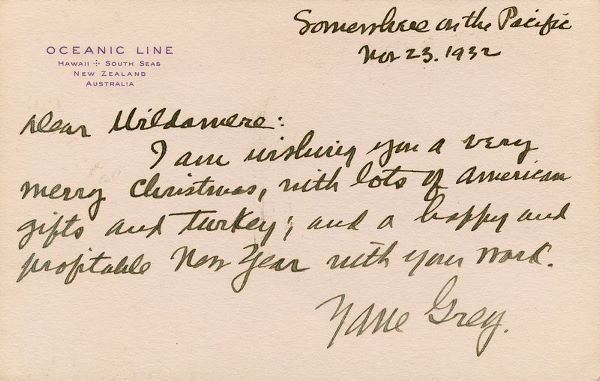 Somewhere on the Pacific
Nov 23. 1932
OCEANIC LINE
HAWAII ✣ SOUTH SEAS
NEW ZEALAND
AUSTRALIA
Dear Wildamere:
I am wishing you a very
merry Christmas, with lots of American
gifts and turkey; and a happy and
profitable New Year with your work.
Zane Grey.